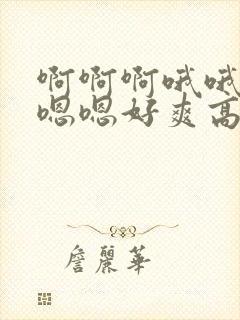 啊啊啊哦哦
嗯嗯好爽高
詹麗華